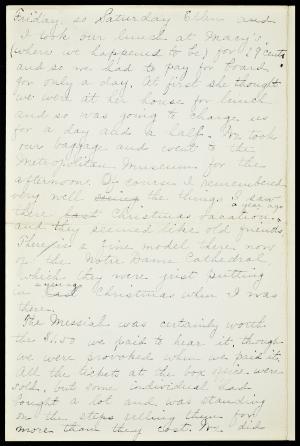 Friday, so Saturday Ellen and
I took our lunch at Macy's,
(where we happened to be) for 19 cents
and so we had to pay in board
for only a day. At first she thought
we were at her house for lunch
and so was going to charge us
for a day and a half. We took
our baggage and went to the
Metropolitan Museum for the
afternoon. Of course I remembered
very well the things I saw
there last Christmas vacation a year ago
and they seemed like old friends.
There is a fine model there now
of the Notre Dame Cathedral,
which they were just putting
in last Christmas when I was
there.
The Messiah was certainly worth
the $1.50 we paid to hear it, though
we were provoked when we paid it.
All the tickets at the box office were
sold, but some individual had
bought a lot and was standing
on the steps selling them for
more than they cost. We did